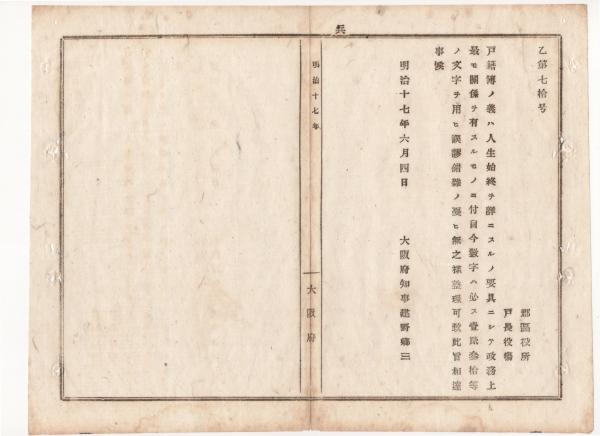 乙第七拾号
郡區役所
戸長役塲
戸籍簿ノ義ハ人生始終ヲ詳ニスルノ要具ニシテ政務上
最モ關係ヲ有スルモノニ付自今數字ハ必ス壹貳參拾等
ノ文字ヲ用ヒ誤謬錯雜ノ憂ヒ無之樣整理可致此旨相達
事候
明治十七年六月四日
大阪府知事建野郷三
兵
明治十七年
大阪府